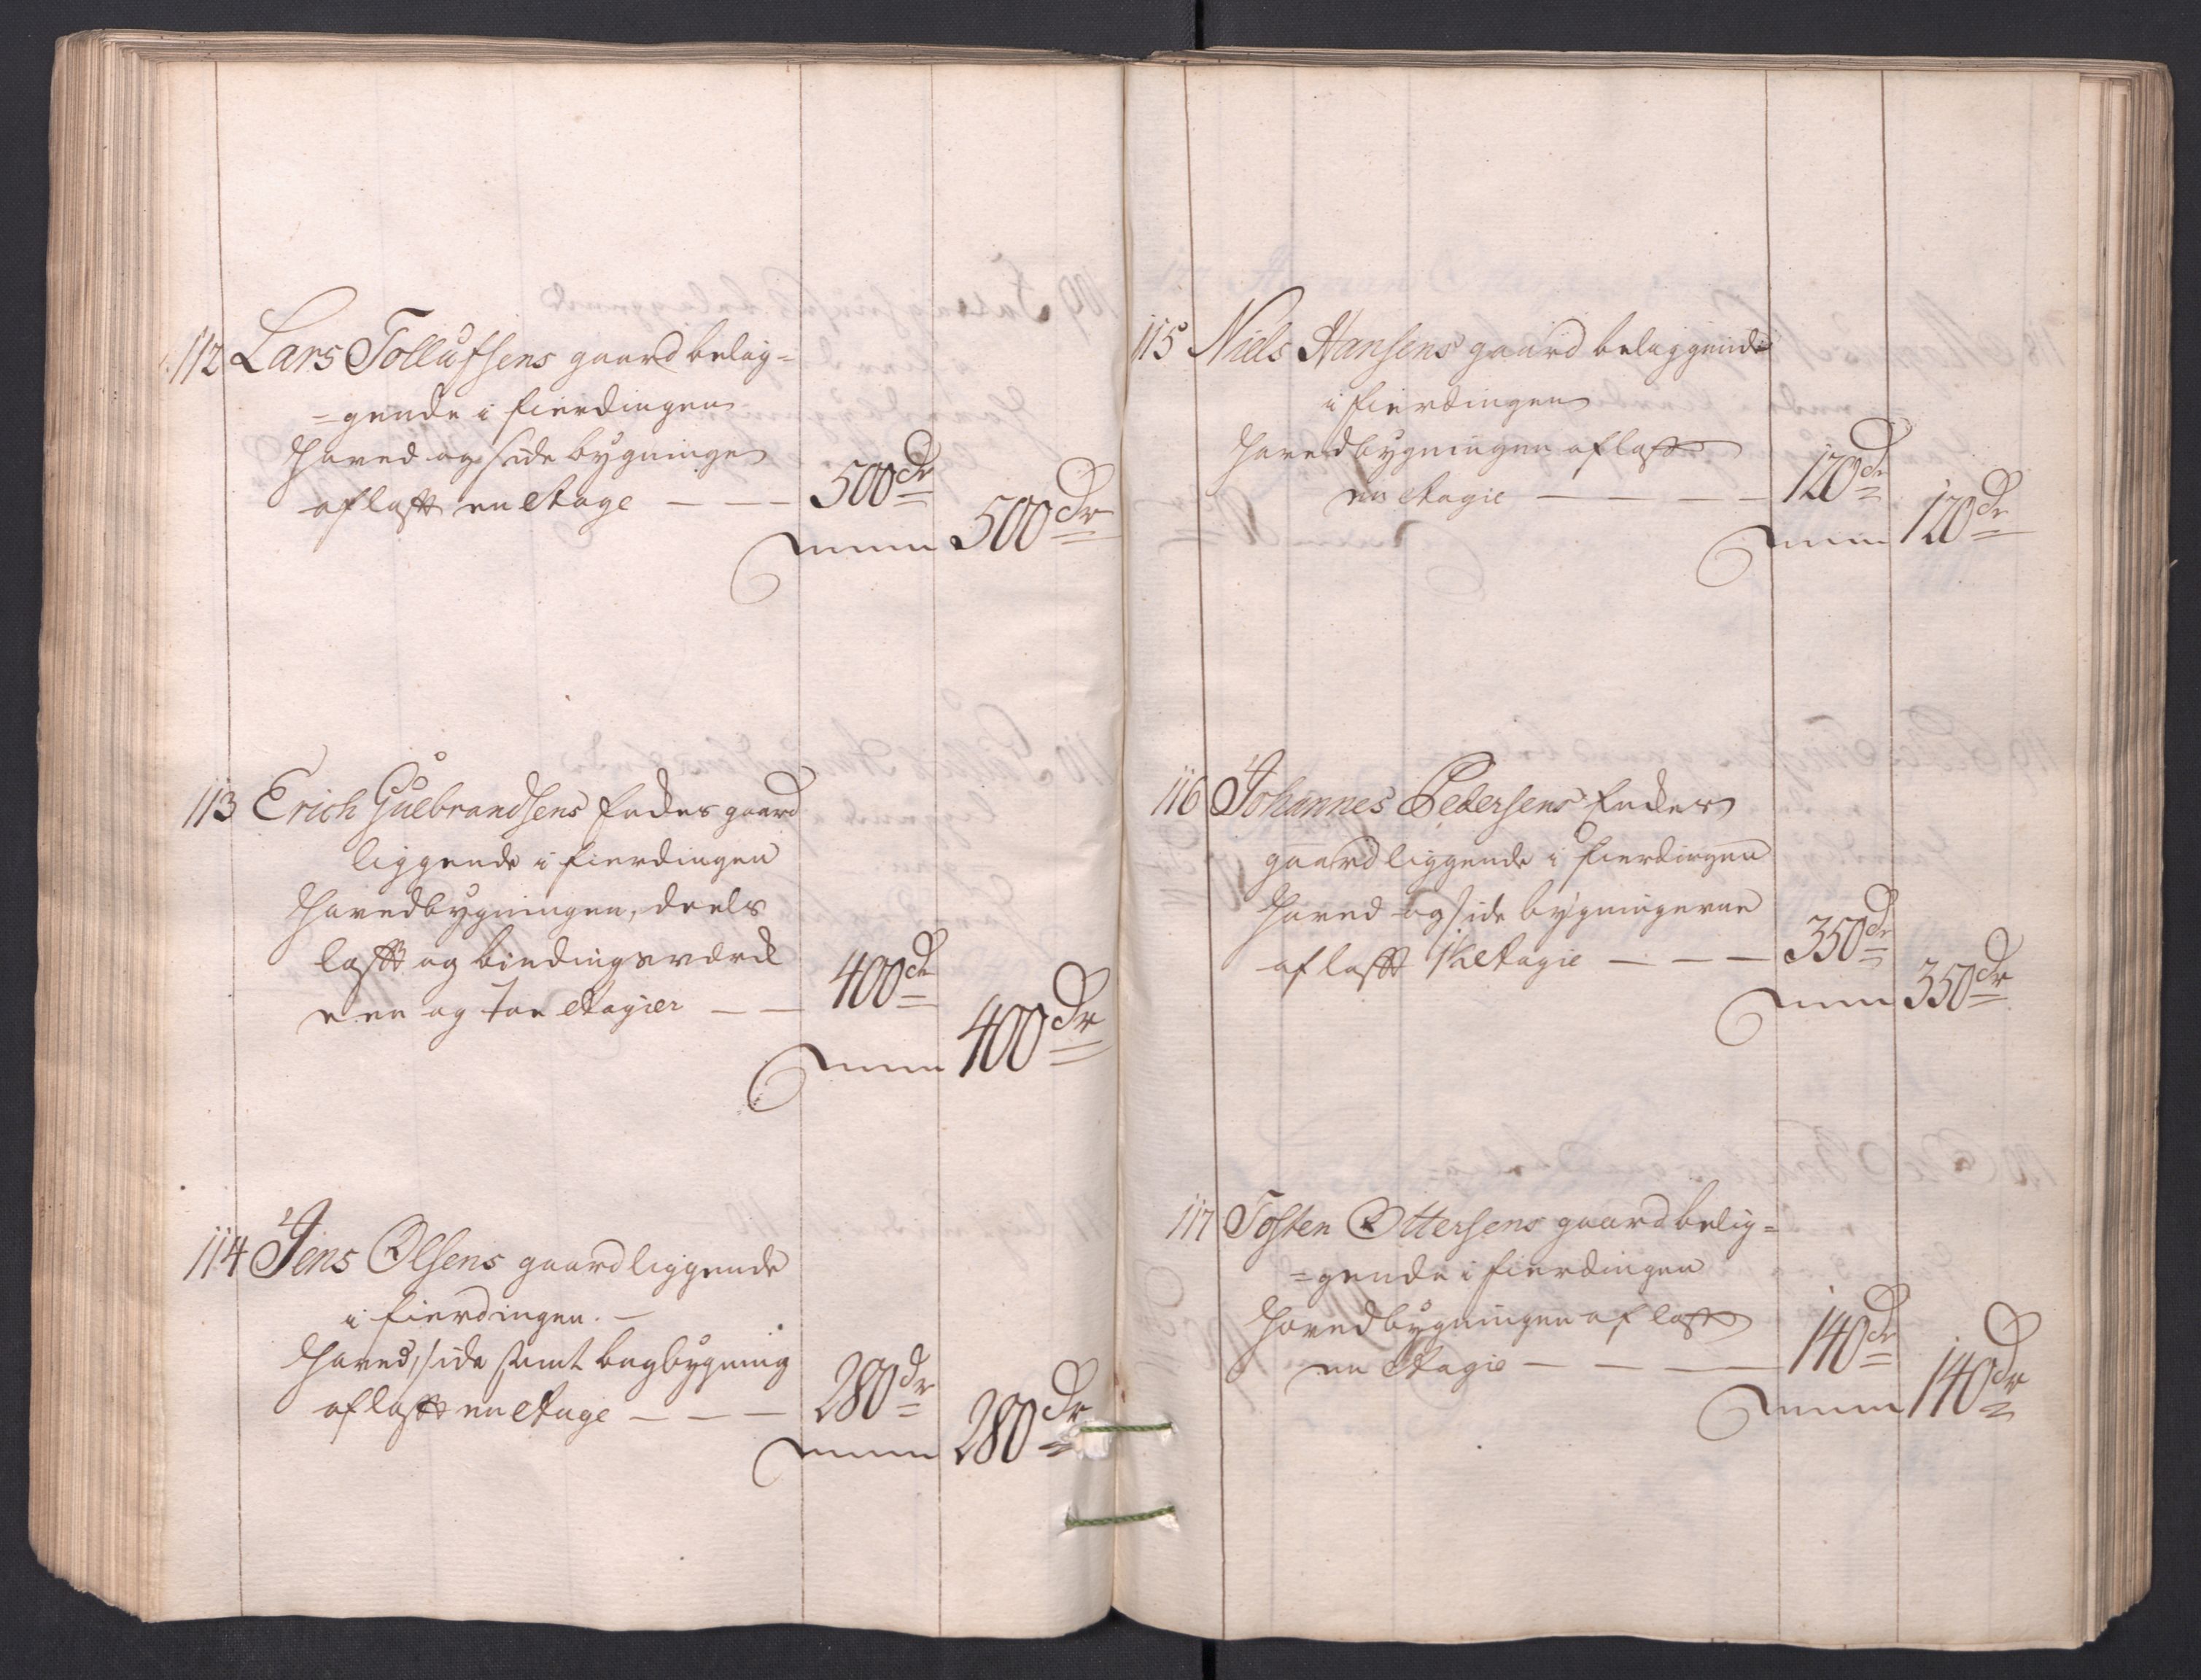 112 Lars Tollufsens gaard belig=
=gende i fierdingen
Hoved og side bygninge
af laft en Etage — — — 500 dr
Summa 500 Dr
113 Erich Gulbrandsens Enckes gaard
liggende i fierdingen
Hovedbygningen, deels
laft og bindingsværck
een og toe Etagier — — 400 dr
Summa 400 Dr
114 Jens Olsens gaard liggende
i fierdingen. —
Hoved, side samt bagbygning
af laft en Etage — — — 280 dr
Summa 280 Dr
115 Niels Hansens gaard beliggende
i fierdingen
Hovedbygningen af laft
en Etagie — — — — 120 dr
Summa 120 Dr
116 Johannes Pedersens Enckes
gaard liggende i fierdingen
Hoved og side bygningerne
af laft 1 Etagie — — — 350 dr
Summa 350 Dr
117 Tosten Ottersens gaard belig=
=gende i fierdingen
Hovedbygningen af laft
en Etagie — — — — 140 dr
Summa 140 Dr